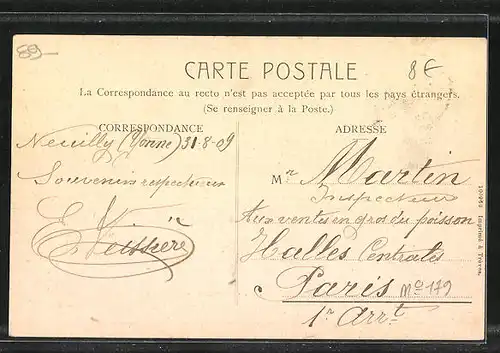 89
CARTE POSTALE
8€
La Correspondance au recto n'est pas acceptée par tous les pays étrangers.
(Se renseigner à la Poste.)
CORRESPONDANCE
Neuilly (Yonne) 31-8-09
Souvenirs respectueux
E. Veissière
ADRESSE
Mr Martin
Inspecteur
Aux ventes en gros du poisson
Halles Centrales
Paris Mo 179
1r Arrt
Imprimé à Troyes.